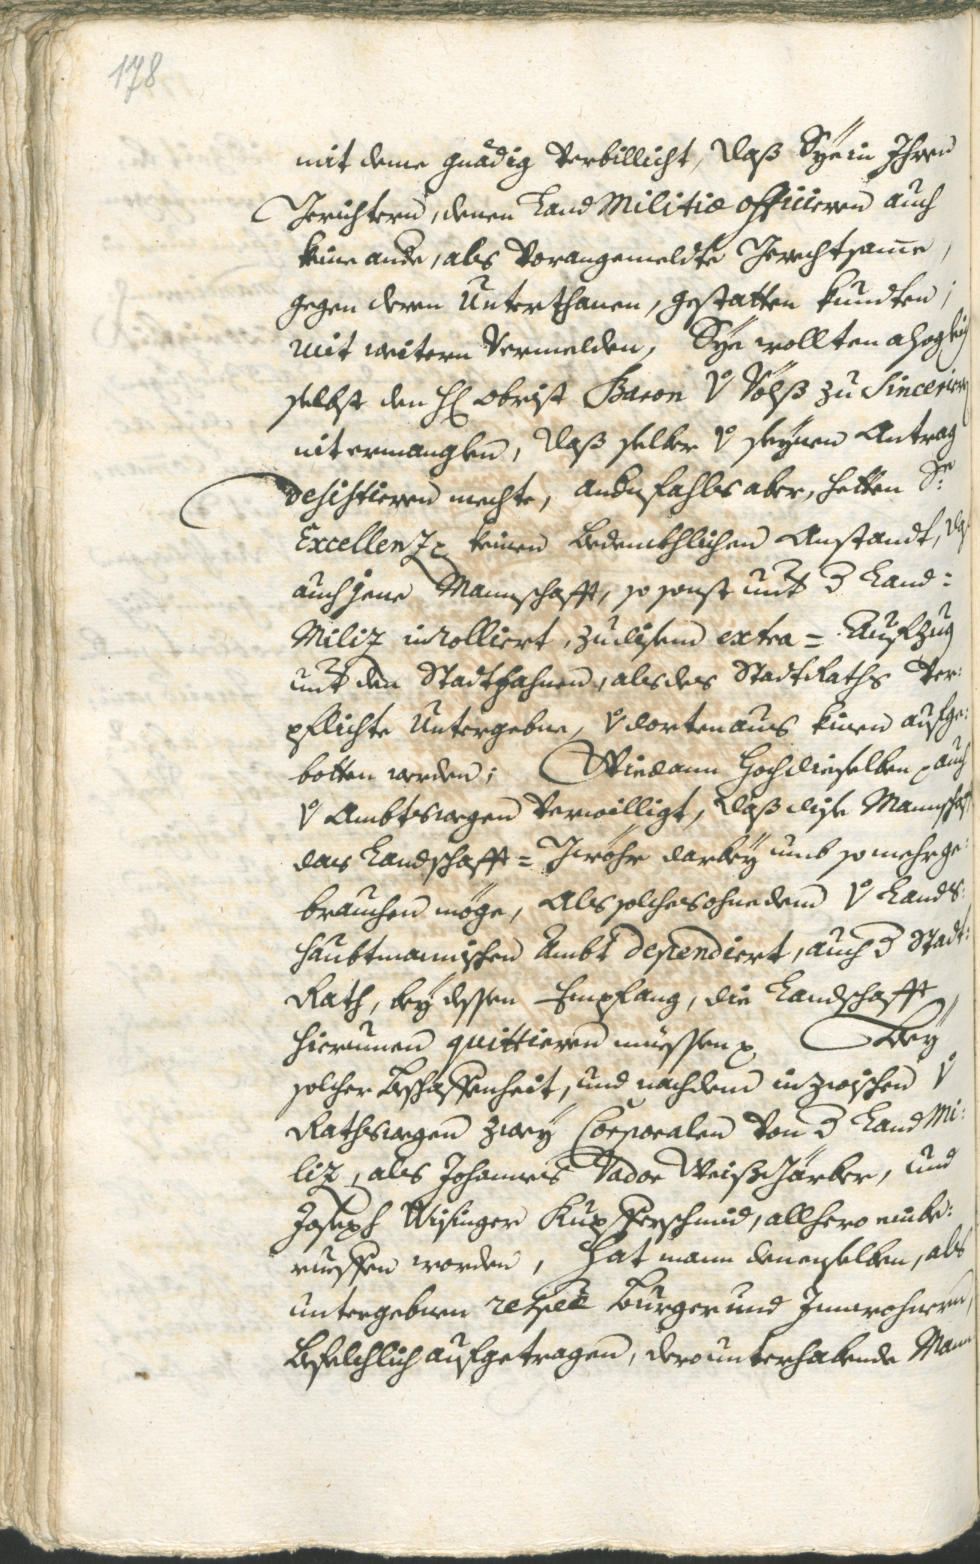 178
mit deme gnädig verbillicht, daß Sÿe in Ihren
Gerichtern, denen Land Militiæ officieren auch
keine ande, als vorangemeldte Gerechtsame,
gegen deren Unterthanen, gestatten kundten;
Mit weitern Vermelden, Sÿe wollten
selbst den H: Obrist Baron V Völß zu Sincerieren
nit ermanglen, daß selber V seÿnen Antrag
desistieren mechte, andnfahls aber, hetten Sr:
Excellenz keinen bedenckhlichen Anstandt, das
auch jene Mannschafft, so sonst unt d Land=
Miliz inrolliert, zu disem extra= Aufzug
unt den Stadtfahnen, als des StadtRaths Ver:
pflichte Untergebne, V dorten aus kinen aufge:
botten werden; Wiedann Hochdieselben auch
V Ambtswegen verwilligt, daß dise Mannschafft
das Landschafft= Gwöhr darbeÿ umb so mehr ge:
brauchen möge, Als solches ohnedem V Lands:
haubtmannischen Ambt dependiert, auch d Stadt:
Rath, beÿ dessen Empfang, die Landschafft
hierumen quittieren müessen. Beÿ
solcher beschaffenheit, und nachdem inzwischen V
Rathswegen zweÿ Corporalen von d Land Mi:
liz, als Johannes Vador Weißgärber, und
Joseph Wisinger Kupfferschmid, allhero einbe:
rueffen worden, hat mann denenselben, als
untergebnen respec Burger und Innwohnern,
befelchlich aufgetragen, dero unterhabende Mann